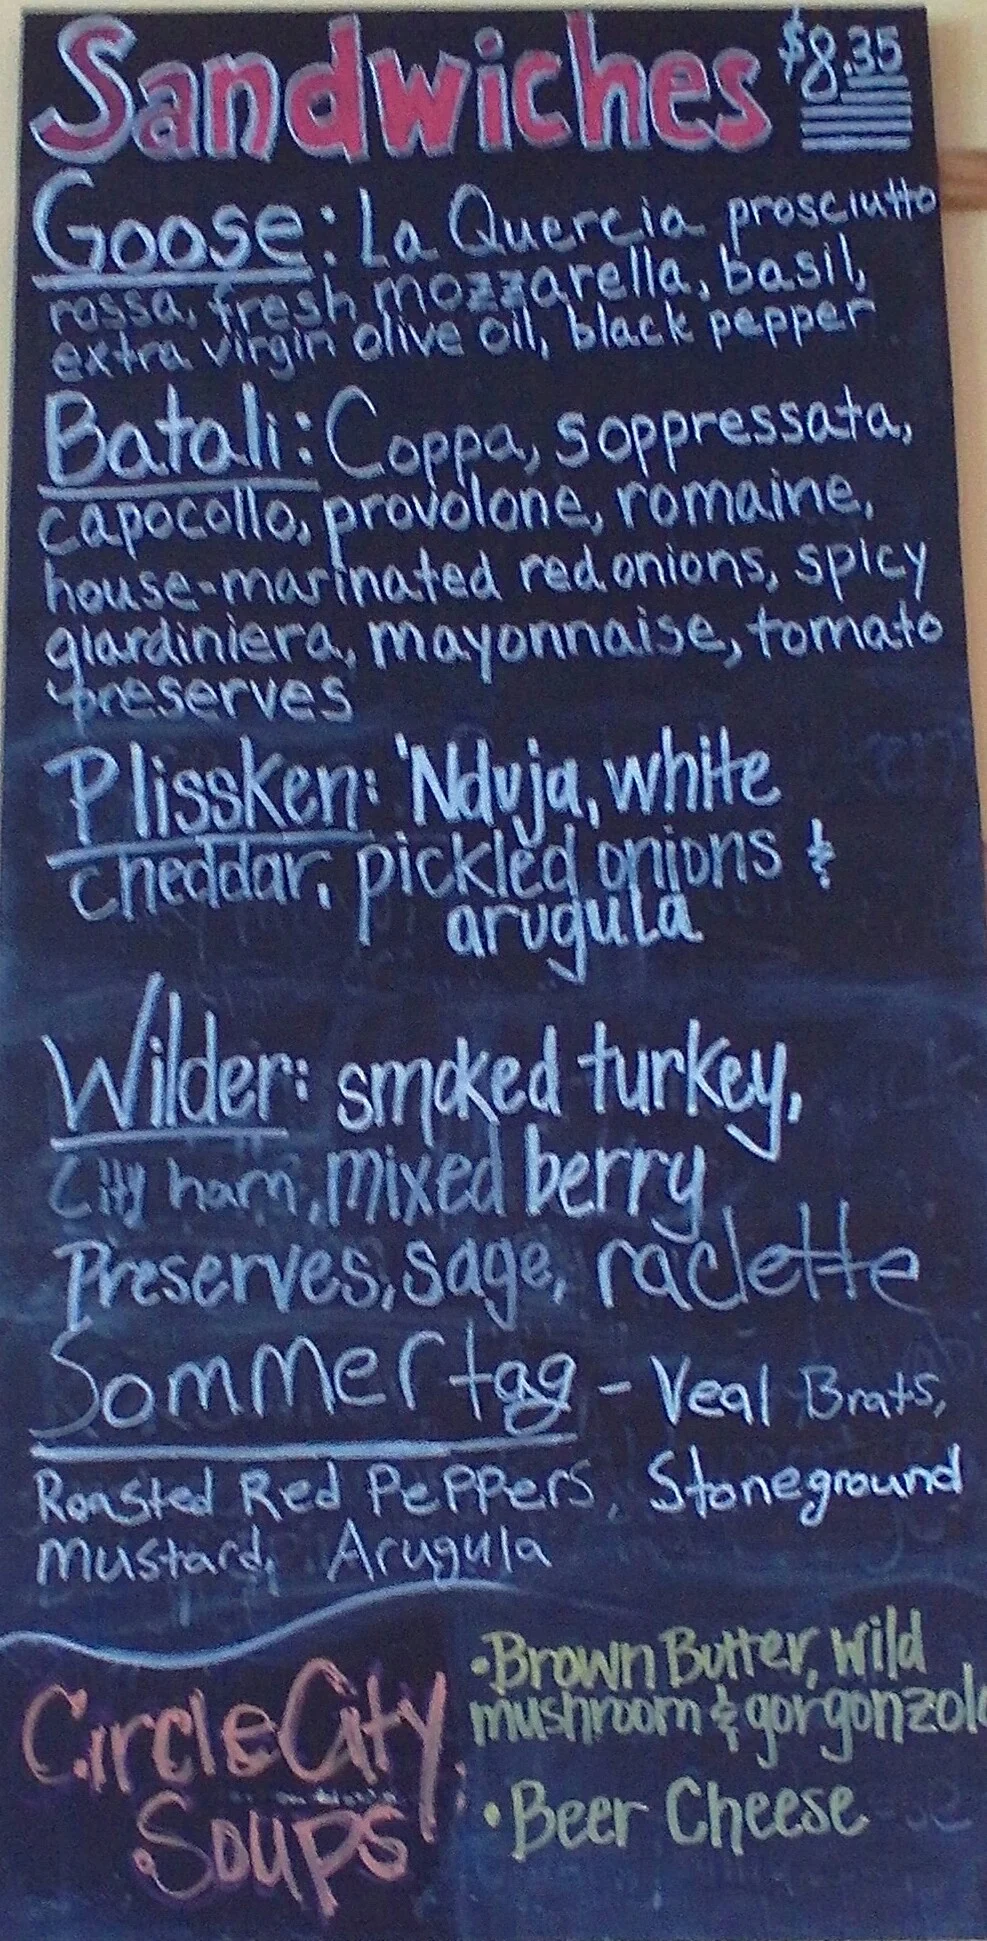 Sandwiches $8.35
Goose: La Quercia prosciutto
rossa, fresh mozzarella, basil,
extra virgin olive oil, black pepper
Batali: Coppa, soppressata,
capocollo, provolone, romaine,
house-marinated red onions, spicy
giardiniera, mayonnaise, tomato
preserves
Plissken: 'Nduja, white
cheddar, pickled onions &
arugula
Wilder: smoked turkey,
City ham, mixed berry
Preserves, sage, raclette
Sommertag - Veal Brats,
Roasted Red Peppers, Stoneground
Mustard, Arugula
Circle City
Soups
•Brown Butter, wild
mushroom & gorgonzola
•Beer Cheese